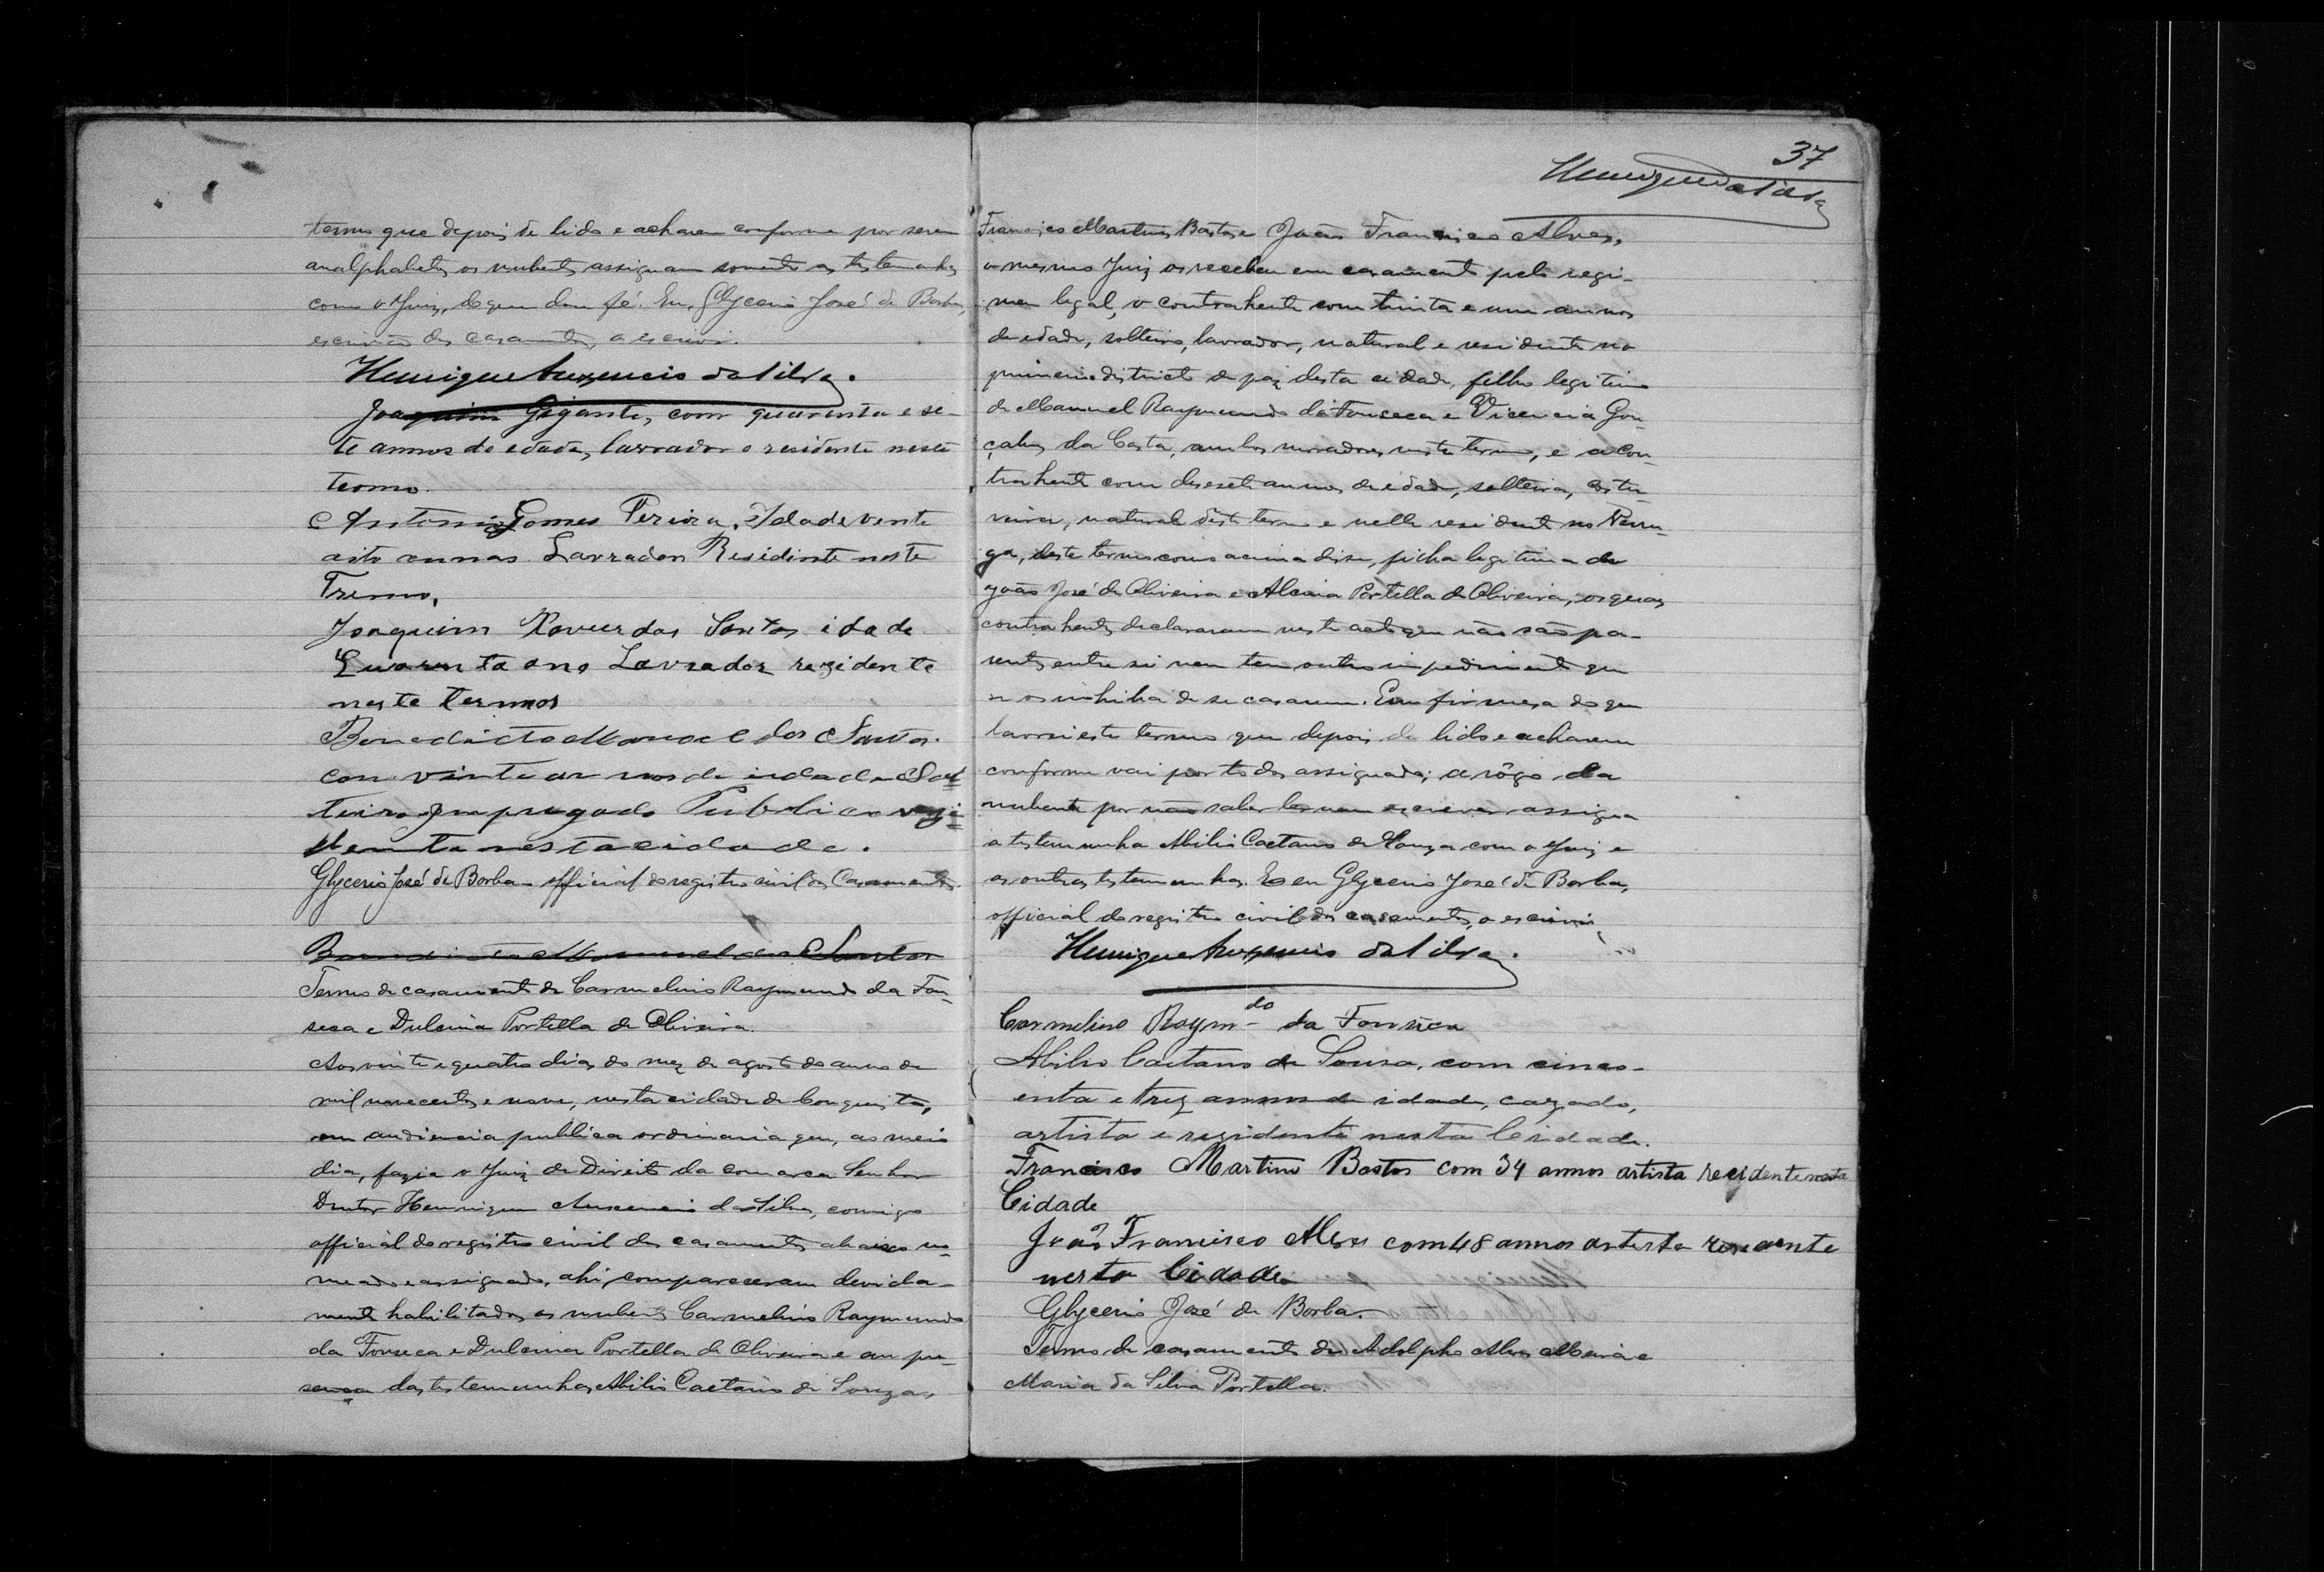 termo que depois de lido e acharem conforme por serem
analphabetos os nubentes assignam somente as testemunhas
como o Juiz, do que dou fé. Eu, Glycerio José de Borba,
escrivão dos casamentos, o escrevi.
Henrique Auxencio da Silva.
Joaquim Gigante, com quarenta e se-
te annos de edade, lavrador e residente neste
termo.
Antonio Gomes Pereira, Idade vente
aito annas. Lavrador Residinte neste
Tremo,
Joaquim Xavier dos Santos idade
Quarenta ano Lavrador rezidente
neste termos
Benedicto Manoel dos Santos.
con vinte annos de idade Sol
teiro Impregado Publico rezi
dente nesta cidade.
Glycerio José de Borba official do registro civil dos Casamentos.
Benedicto Manuel dos Santos
Termo de casamento de Carmelino Raymundo da Fon-
seca e Dulcina Portella de Oliveira.
Aos vinte e quatro dias do mez de agosto do anno de
mil novecentos e nove, nesta cidade de Conquista,
em audiencia publica ordinaria que, ao meio
dia, fazia o Juiz de Direito da comarca Senhor
Doutor Henrique Auxencio da Silva, comigo
official do registro civil dos casamentos abaixo no-
meado e assignado, ahi compareceram devida-
mente habilitados os nubentes Carmelino Raymundo
da Fonseca e Dulcina Portella de Oliveira e em pre-
sença das testemunhas Abilio Caetano de Souza,
37
Henrique da Silva
Francisco Martins Bastos e João Francisco Alves,
o mesmo Juiz os recebeu em casamento pelo regi-
men legal, o contrahente com trinta e um annos
de edade, solteiro, lavrador, natural e residente no
primeiro districto de paz desta cidade, filho legitimo
de Manuel Raymundo da Fonseca e Vicencia Gon-
çalves da Costa, ambos moradores neste termo, e a con-
trahente com desesete annos de edade, solteira, costu-
reira, natural deste termo e nelle residente no
ga, deste termo como acima disse, filha legitima de
João José de Oliveira e Alcina Portella de Oliveira, os quaes
contrahentes declararam neste acto que não são pa-
rentes entre si nem tem outro impedimento que
os inhiba de se casarem. Em firmesa do que
lavrei este termo que depois de lido e acharem
conforme vai por todos assignado; a rôgo da
nubente por não saber ler nem escrever assigna
a testemunha Abilio Caetano de Souza com o Juiz e
as outras testemunhas. E eu Glycerio José de Borba,
official do registro civil dos casamentos, o escrevi.
Henrique Auxencio da Silva.
Carmelino Raym.do da Fonseca
Abilio Caetano de Sousa, com cinco-
enta e trez annos de idade, cazado,
artista e rezidente nesta Cidade.
Francisco Martins Bastos com 34 annos artista residente nesta
Cidade
João Francisco Alves com 48 annos artista residente
nesta Cidade
Glycerio José de Borba.
Termo de casamento de Adolpho Alves Meira e
Maria da Silva Portella.